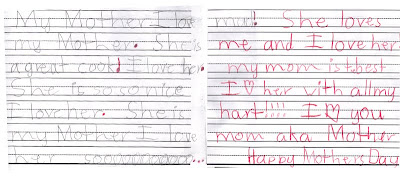 My Mother I love
my Mother. She is
a great cook! I love her
She is so so nice
I love her. She is
my Mother I love
her sooooooooooo...
mu! She loves
me and I love her
my mom is the best
I ♡ her with all my
hart!!!! I ♡ you
mom aka Mother
Happy Mothers Day